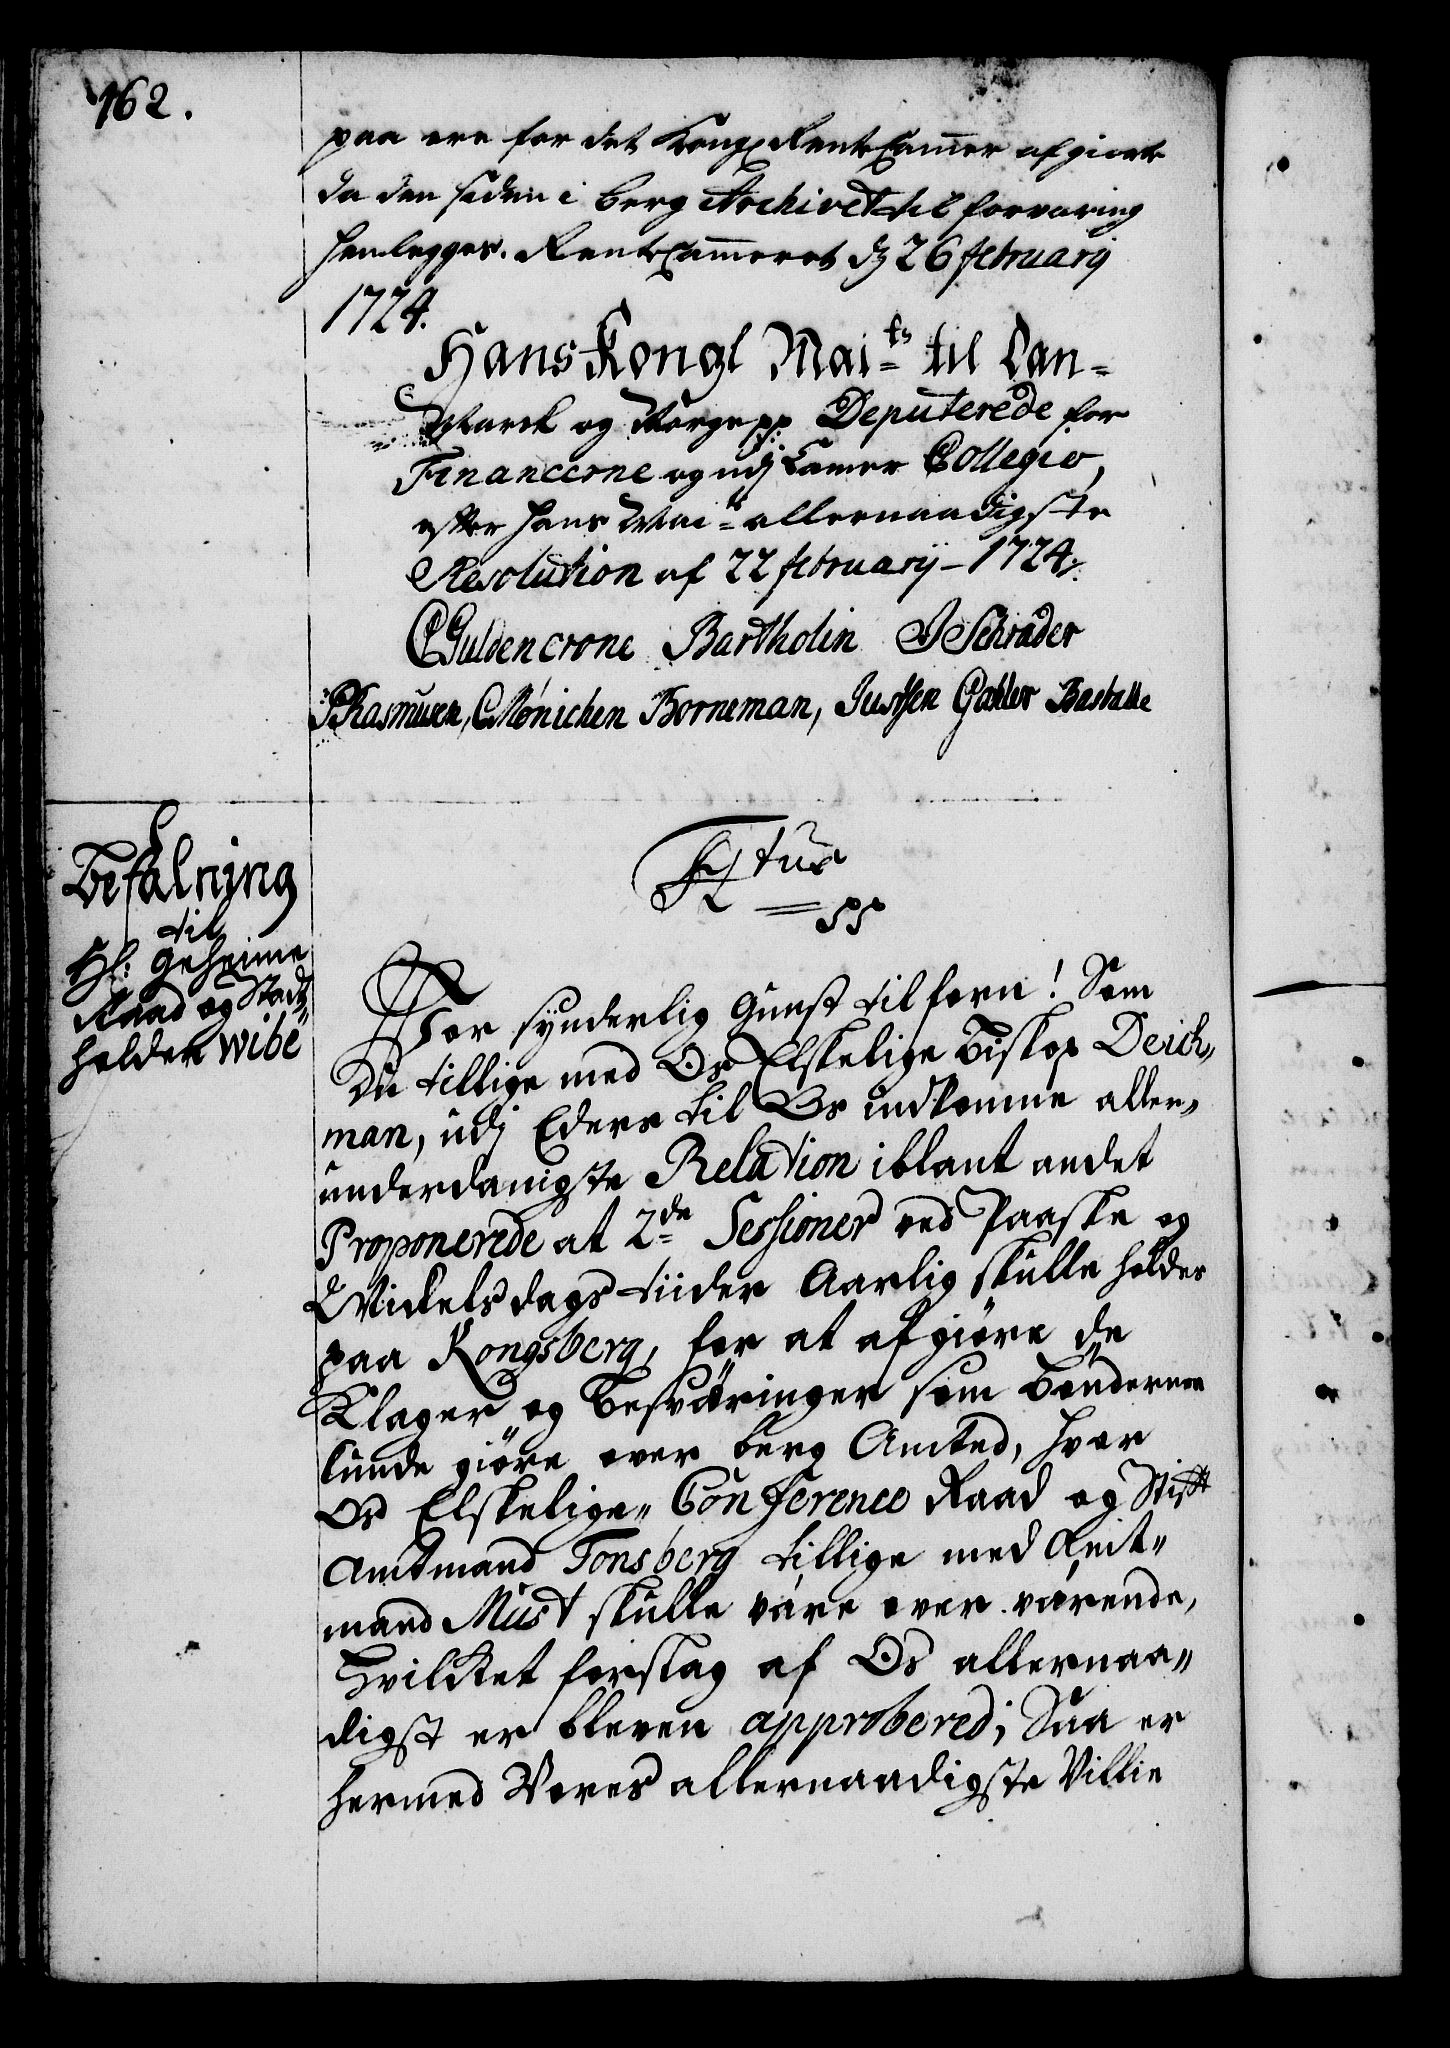 162.
paa ere for det Kongl Rente Cammer afgiort
da den siden i berg Archivet til forvaring
henlegges. Rente Cammeret d 26 february
1724.
Hans Kongl Mai.ts til Dan=
Marck og Norge pp Deputerede for
Financerne og udj Camer Collegio,
efter hans Mai.ts allernaadigste
Resolution af 22 february - 1724.
CGuldencrone Bartholin JSchrader
PRasmusen, CMönichen Borneman, Justsen Gahler
Befalning
til
Hl: geheime
Raad og Stadt„
holder wibe
F4 tus
pp
Vor synderlig Gunst tilforn! Som
Du tillige med Os Elskelige Biskop Deich„
man, udj Eders til Os indkomne aller„
underdanigste Relation iblant andet
Proponerede at 2de Sessioner ved Paaske og
Mickelsdags tiider Aarlig skulle holdes
paa Kongsberg, for at afgiöre de
Klager og Besväringer som Bönderne
kunde giöre over berg Amted, hvor
Os Elskelige„ Conference Raad og Stift
Amtmand Tonsberg tillige med Amt„
mand Must skulle väre over värende,
Hvilket forslag af Os allernaa„
digst er bleven approbered; Saa er
hermed Vores allernaadigste Villie